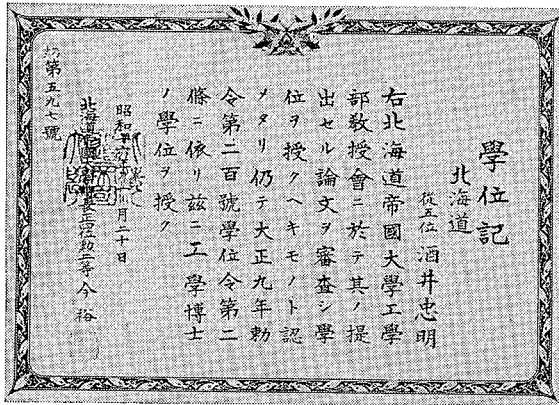 學位記
北海道
從五位 酒井忠明
右北海道帝國大學工學
部教授會ニ於テ其ノ提
出セル論文ヲ審査シ學
位ヲ授クヘキモノト認
メタリ仍テ大正九年勅
令第二百號學位令第二
條ニ依リ玆ニ工學博士
ノ學位ヲ授ク
昭和 月二十日
北海道 正四位勳二等 今裕
第五九七號